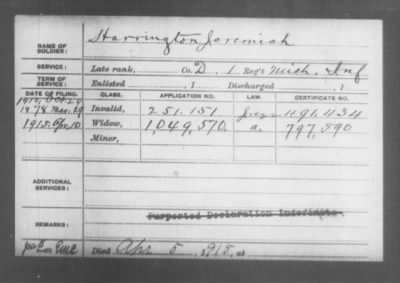 NAME OF SOLDIER: Harrington Jeremiah
SERVICE: Late rank, Co. D, 1 Reg't Mich. Inf
TERM OF SERVICE: Enlisted , 1 Discharged , 1
DATE OF FILING. CLASS. APPLICATION NO. LAW. CERTIFICATE NO.
1878 Mar. 29 Invalid, 251.151 491.434
1915. Apr. 10 Widow, 1,049,570. a. 797,590
Minor,
ADDITIONAL SERVICES:
Purported Declaration Indefinite
REMARKS:
Died Apr 5, 1915, at